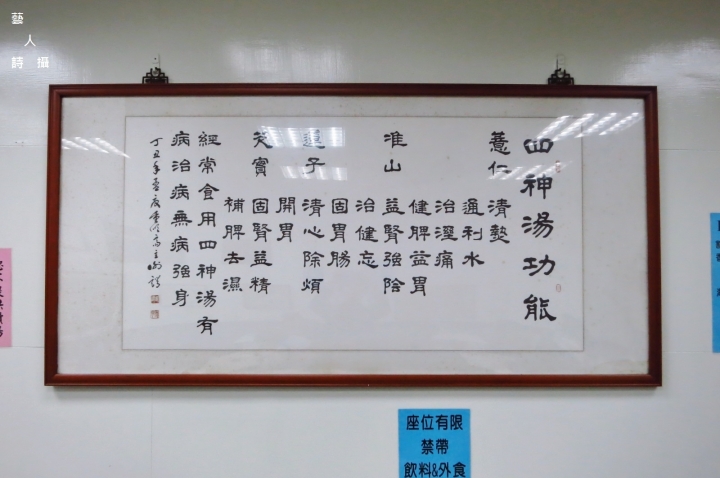 藝
人
詩 攝
四神湯功能
薏仁 清熱
通利水
治溼痛
健脾益胃
淮山 益腎強陰
治健忘
固胃腸
蓮子 清心除煩
開胃
芡實 固腎益精
補脾去濕
經常食用四神湯有
病治病無病強身
丁丑年
座位有限
禁帶
飲料&外食